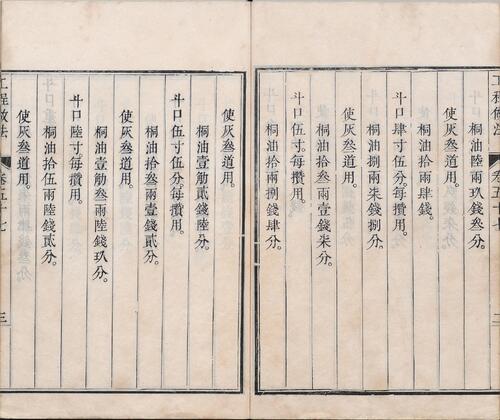 桐油拾兩陸錢叁分。
使灰叁道用。
桐油拾兩肆錢。
使灰叁道用。
斗口肆寸伍分。每攢用。
桐油捌兩柒錢捌分。
使灰叁道用。
桐油拾叁兩壹錢柒分。
斗口伍寸。每攢用。
桐油拾兩捌錢肆分。
使灰叁道用。
桐油拾叁兩壹錢貳分。
斗口伍寸伍分。每攢用。
桐油壹觔貳錢陸分。
使灰叁道用。
桐油壹觔叁兩陸錢玖分。
斗口陸寸。每攢用。
桐油拾伍兩陸錢貳分。
使灰叁道用。
工程做法
卷五十七
三